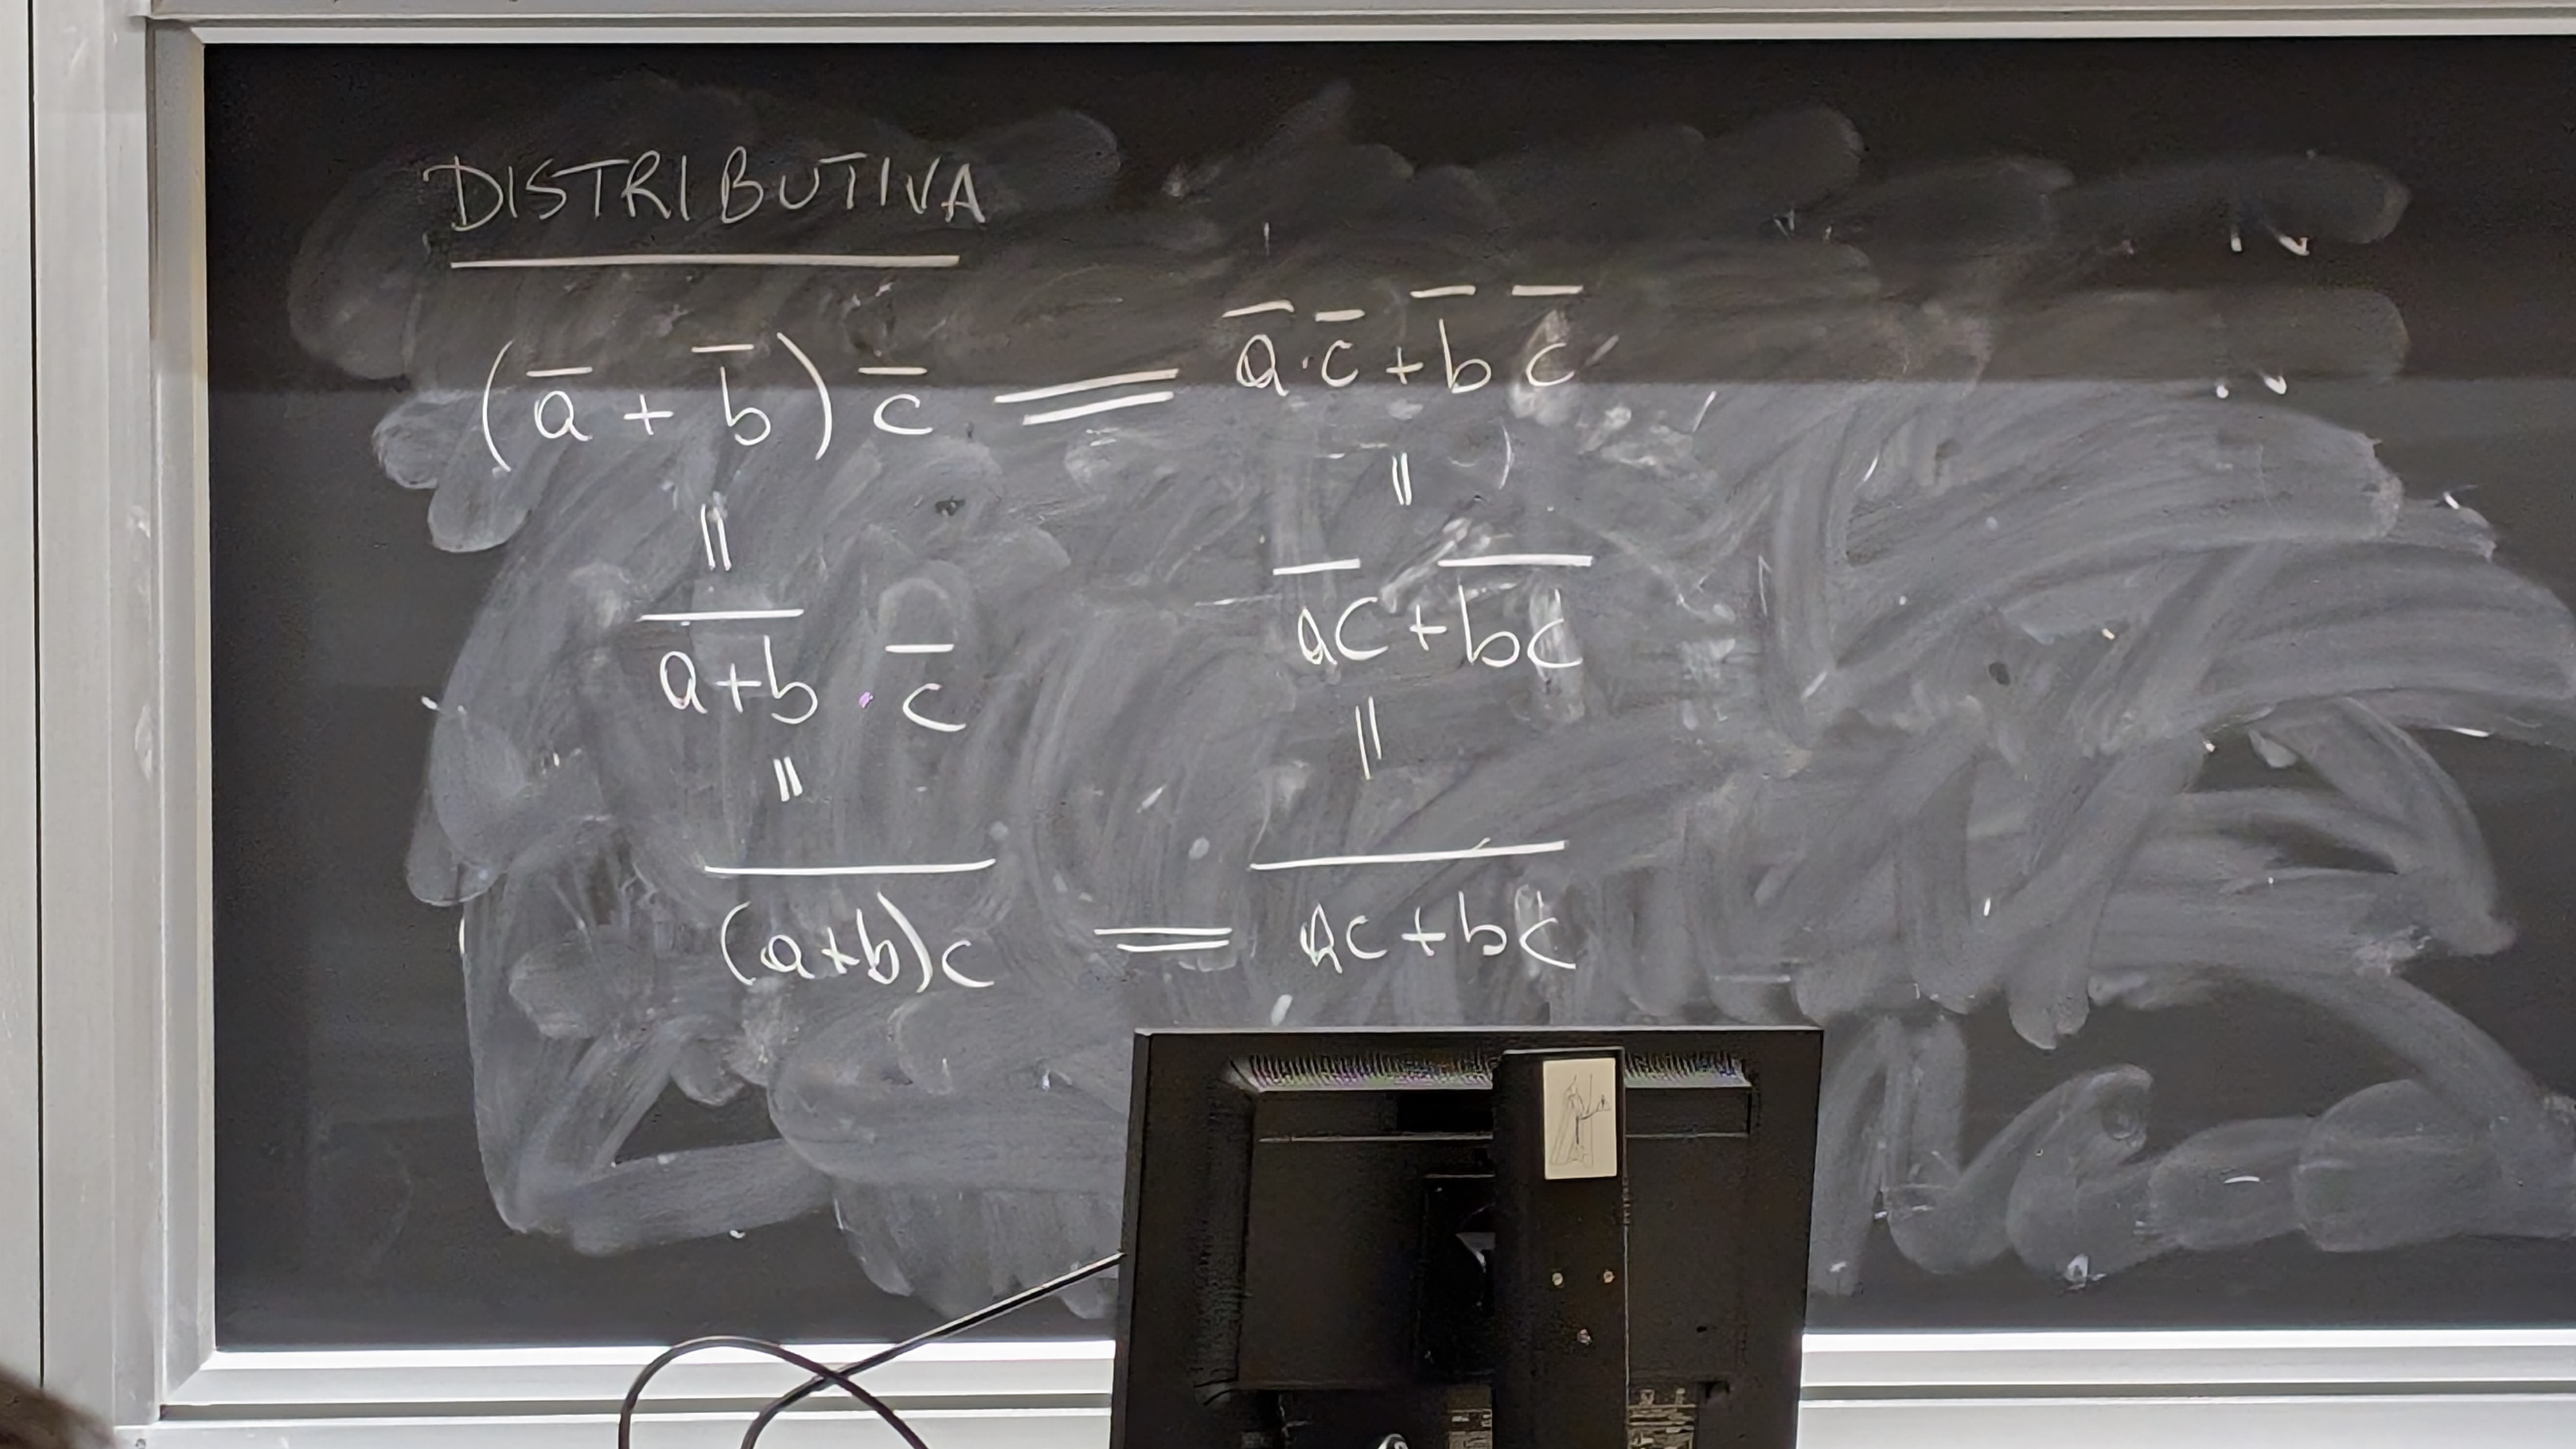 DISTRIBUTIVA
(a̅ + b̅) c̅ = a̅·c̅ + b̅ c̅
||
||
a̅+̅b̅ · c̅
a̅c̅ + b̅c̅
||
||
(̅a̅+̅b̅)̅c̅ = a̅c̅+̅b̅c̅